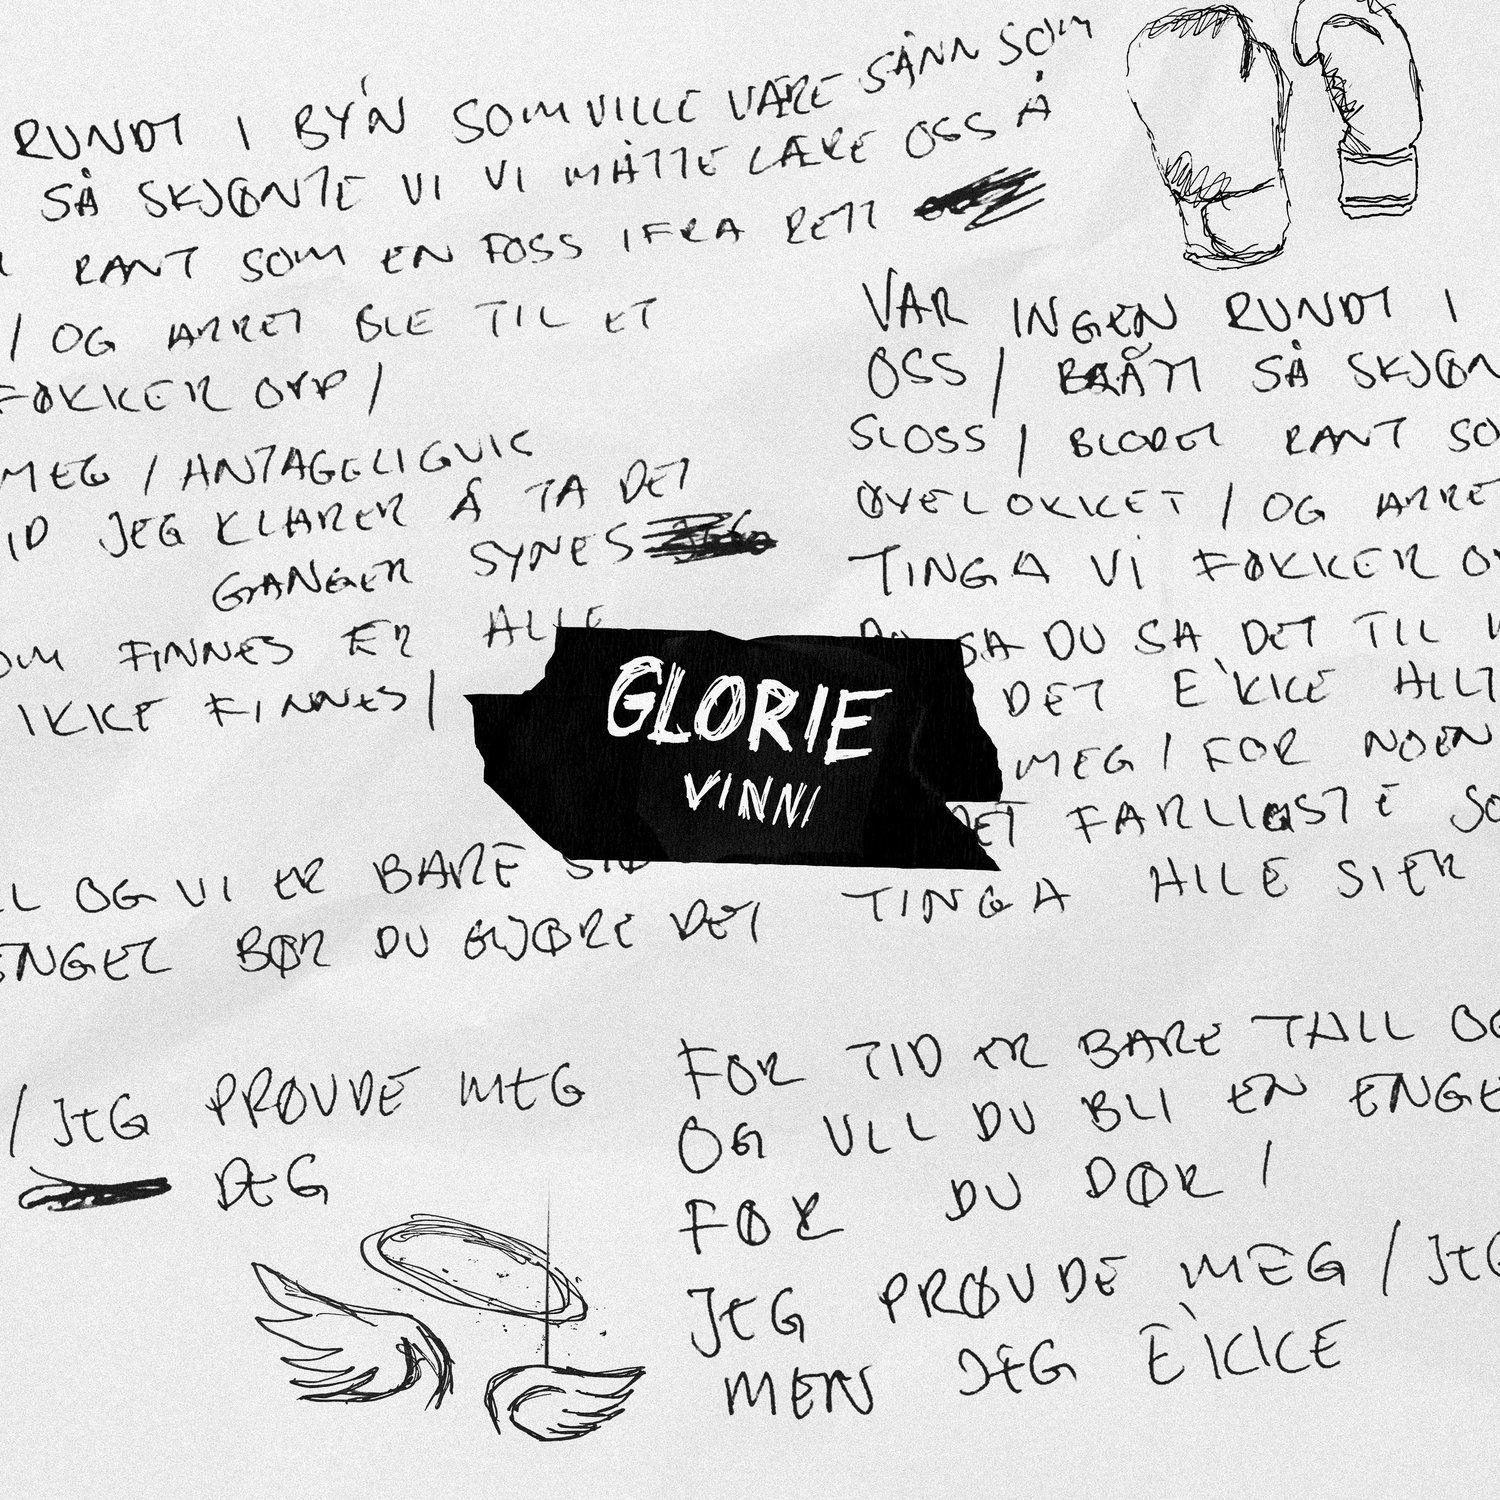 RUNDT I BY'N SOM VILLE VÆRE SÅNN SOM
SÅ SKJØNTE VI VI MÅTTE LÆRE OSS Å
RANT SOM EN FOSS IFRA RETT
/ OG ARRET BLE TIL ET
FØKKER OPP /
MEG / ANTAGELIGVIS
ID JEG KLARER Å TA DET
GANGER SYNES
OM FINNES ER ALLE
IKKE FINNES /
LL OG VI ER BARE
ENGEL BØR DU GJØRE DET
/ JEG PRØVDE MEG
DEG
VAR INGEN RUNDT I
OSS / BRÅTT SÅ SKJØN
SLOSS / BLODET RANT SO
ØYELOKKET / OG ARRET
TINGA VI FØKKER OP
SA DU SA DET TIL
DET E'KKE ALLT
MEG / FOR NOEN
DET FARLIGSTE SO
TINGA ALLE SIER
FOR TID ER BARE TALL OG
OG VLL DU BLI EN ENGE
FØR DU DØR /
JEG PRØVDE MEG / JEG
MEN JEG E'KKE
GLORIE
VINNI